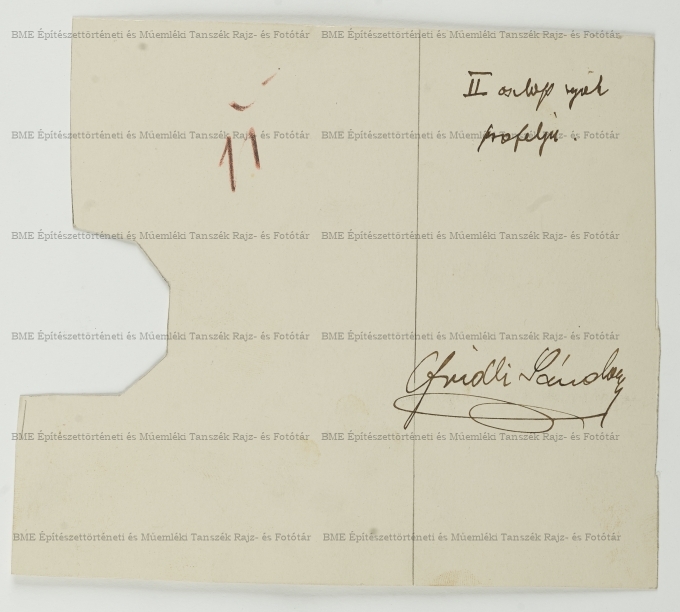 BME Építészettörténeti és Műemléki Tanszék Rajz- és Fotótár BME Építészettörténeti és Műemléki Tanszék Rajz- és Fotótár
II oszlop nyak
BME Építészettörténeti és Műemléki Tanszék Rajz- és Fotótár BME Építészettörténeti és Műemléki Tanszék Rajz- és Fotótár
11
BME Építészettörténeti és Műemléki Tanszék Rajz- és Fotótár BME Építészettörténeti és Műemléki Tanszék Rajz- és Fotótár
BME Építészettörténeti és Műemléki Tanszék Rajz- és Fotótár BME Építészettörténeti és Műemléki Tanszék Rajz- és Fotótár
Sándor
BME Építészettörténeti és Műemléki Tanszék Rajz- és Fotótár BME Építészettörténeti és Műemléki Tanszék Rajz- és Fotótár
BME Építészettörténeti és Műemléki Tanszék Rajz- és Fotótár BME Építészettörténeti és Műemléki Tanszék Rajz- és Fotótár